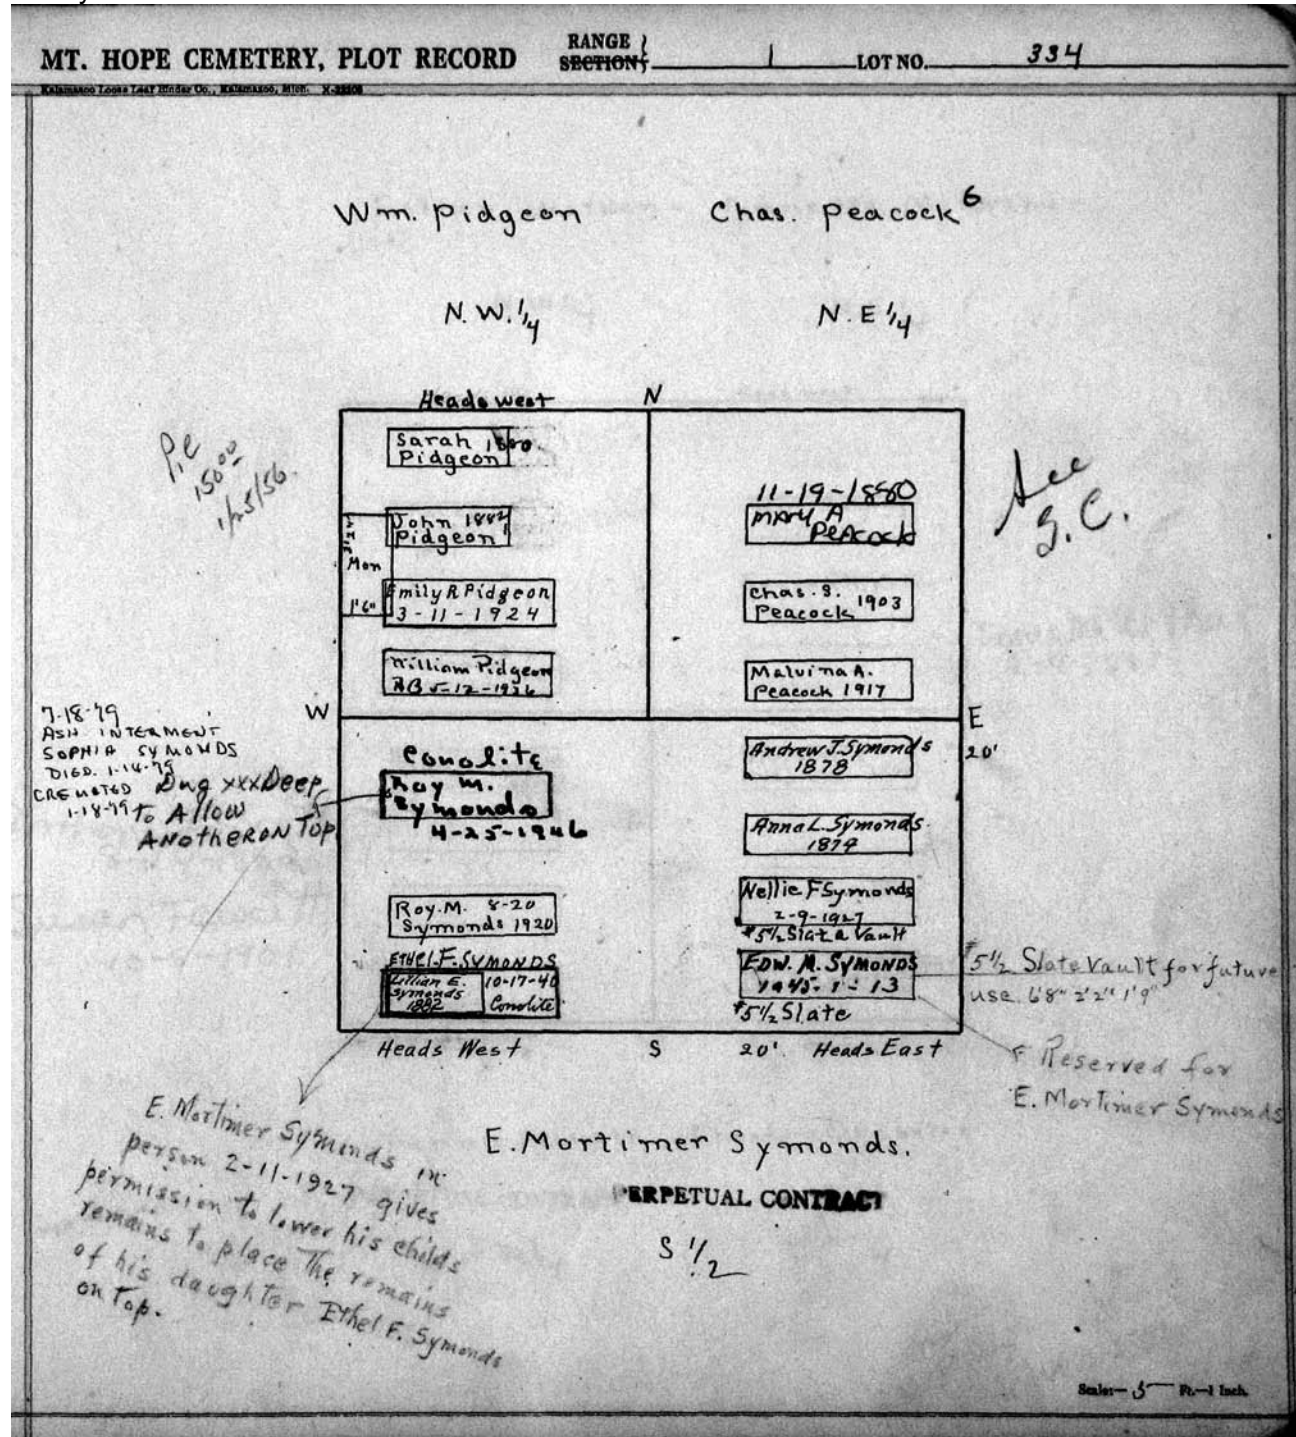 MT. HOPE CEMETERY, PLOT RECORD RANGE SECTION 1 LOT NO. 334
Kalamazoo Loose Leaf Binder Co., Kalamazoo, Mich.
Wm. Pidgeon
Chas. Peacock 6
N.W. 1/4
N.E 1/4
Heads west
N
Sarah
Pidgeon
John 1882
Pidgeon
Mon
1'6"
Emily R Pidgeon
3-11-1924
William Pidgeon
5-12-1926
11-19-1880
MARY A
PEACOCK
Chas. S.
Peacock 1903
Malvina A.
Peacock 1917
150 00
1/25/56.
See
W
E
20'
7-18-79
ASH INTERMENT
SOPHIA SYMONDS
DIED. 1-14-79
CREMATED
1-18-79
Dug xxx Deep
to Allow
ANotherON Top
Conolite
Roy M.
Symonds
4-25-1946
Roy. M. 8-20
Symonds 1920
ETHEL. F. SYMONDS
Lillian E.
Symonds
1882
10-17-40
Conolite
Andrew J. Symonds
1878
Anna L. Symonds.
1874
Nellie F Symonds
2-9-1927
#5 1/2 Slate Vault
EDW. M. SYMONDS
1945-1-13
#5 1/2 Slate
#5 1/2 Slate Vault for future
use. 6'8" 2'2" 1'9"
Heads West
S
20'. Heads East
Reserved for
E. Mortimer Symonds
E. Mortimer Symonds in
person 2-11-1927 gives
permission to lower his childs
remains to place The remains
of his daughter Ethel F. Symonds
on Top.
E. Mortimer Symonds.
PERPETUAL CONTRACT
S 1/2
Scale:— 5 Ft.—1 Inch.